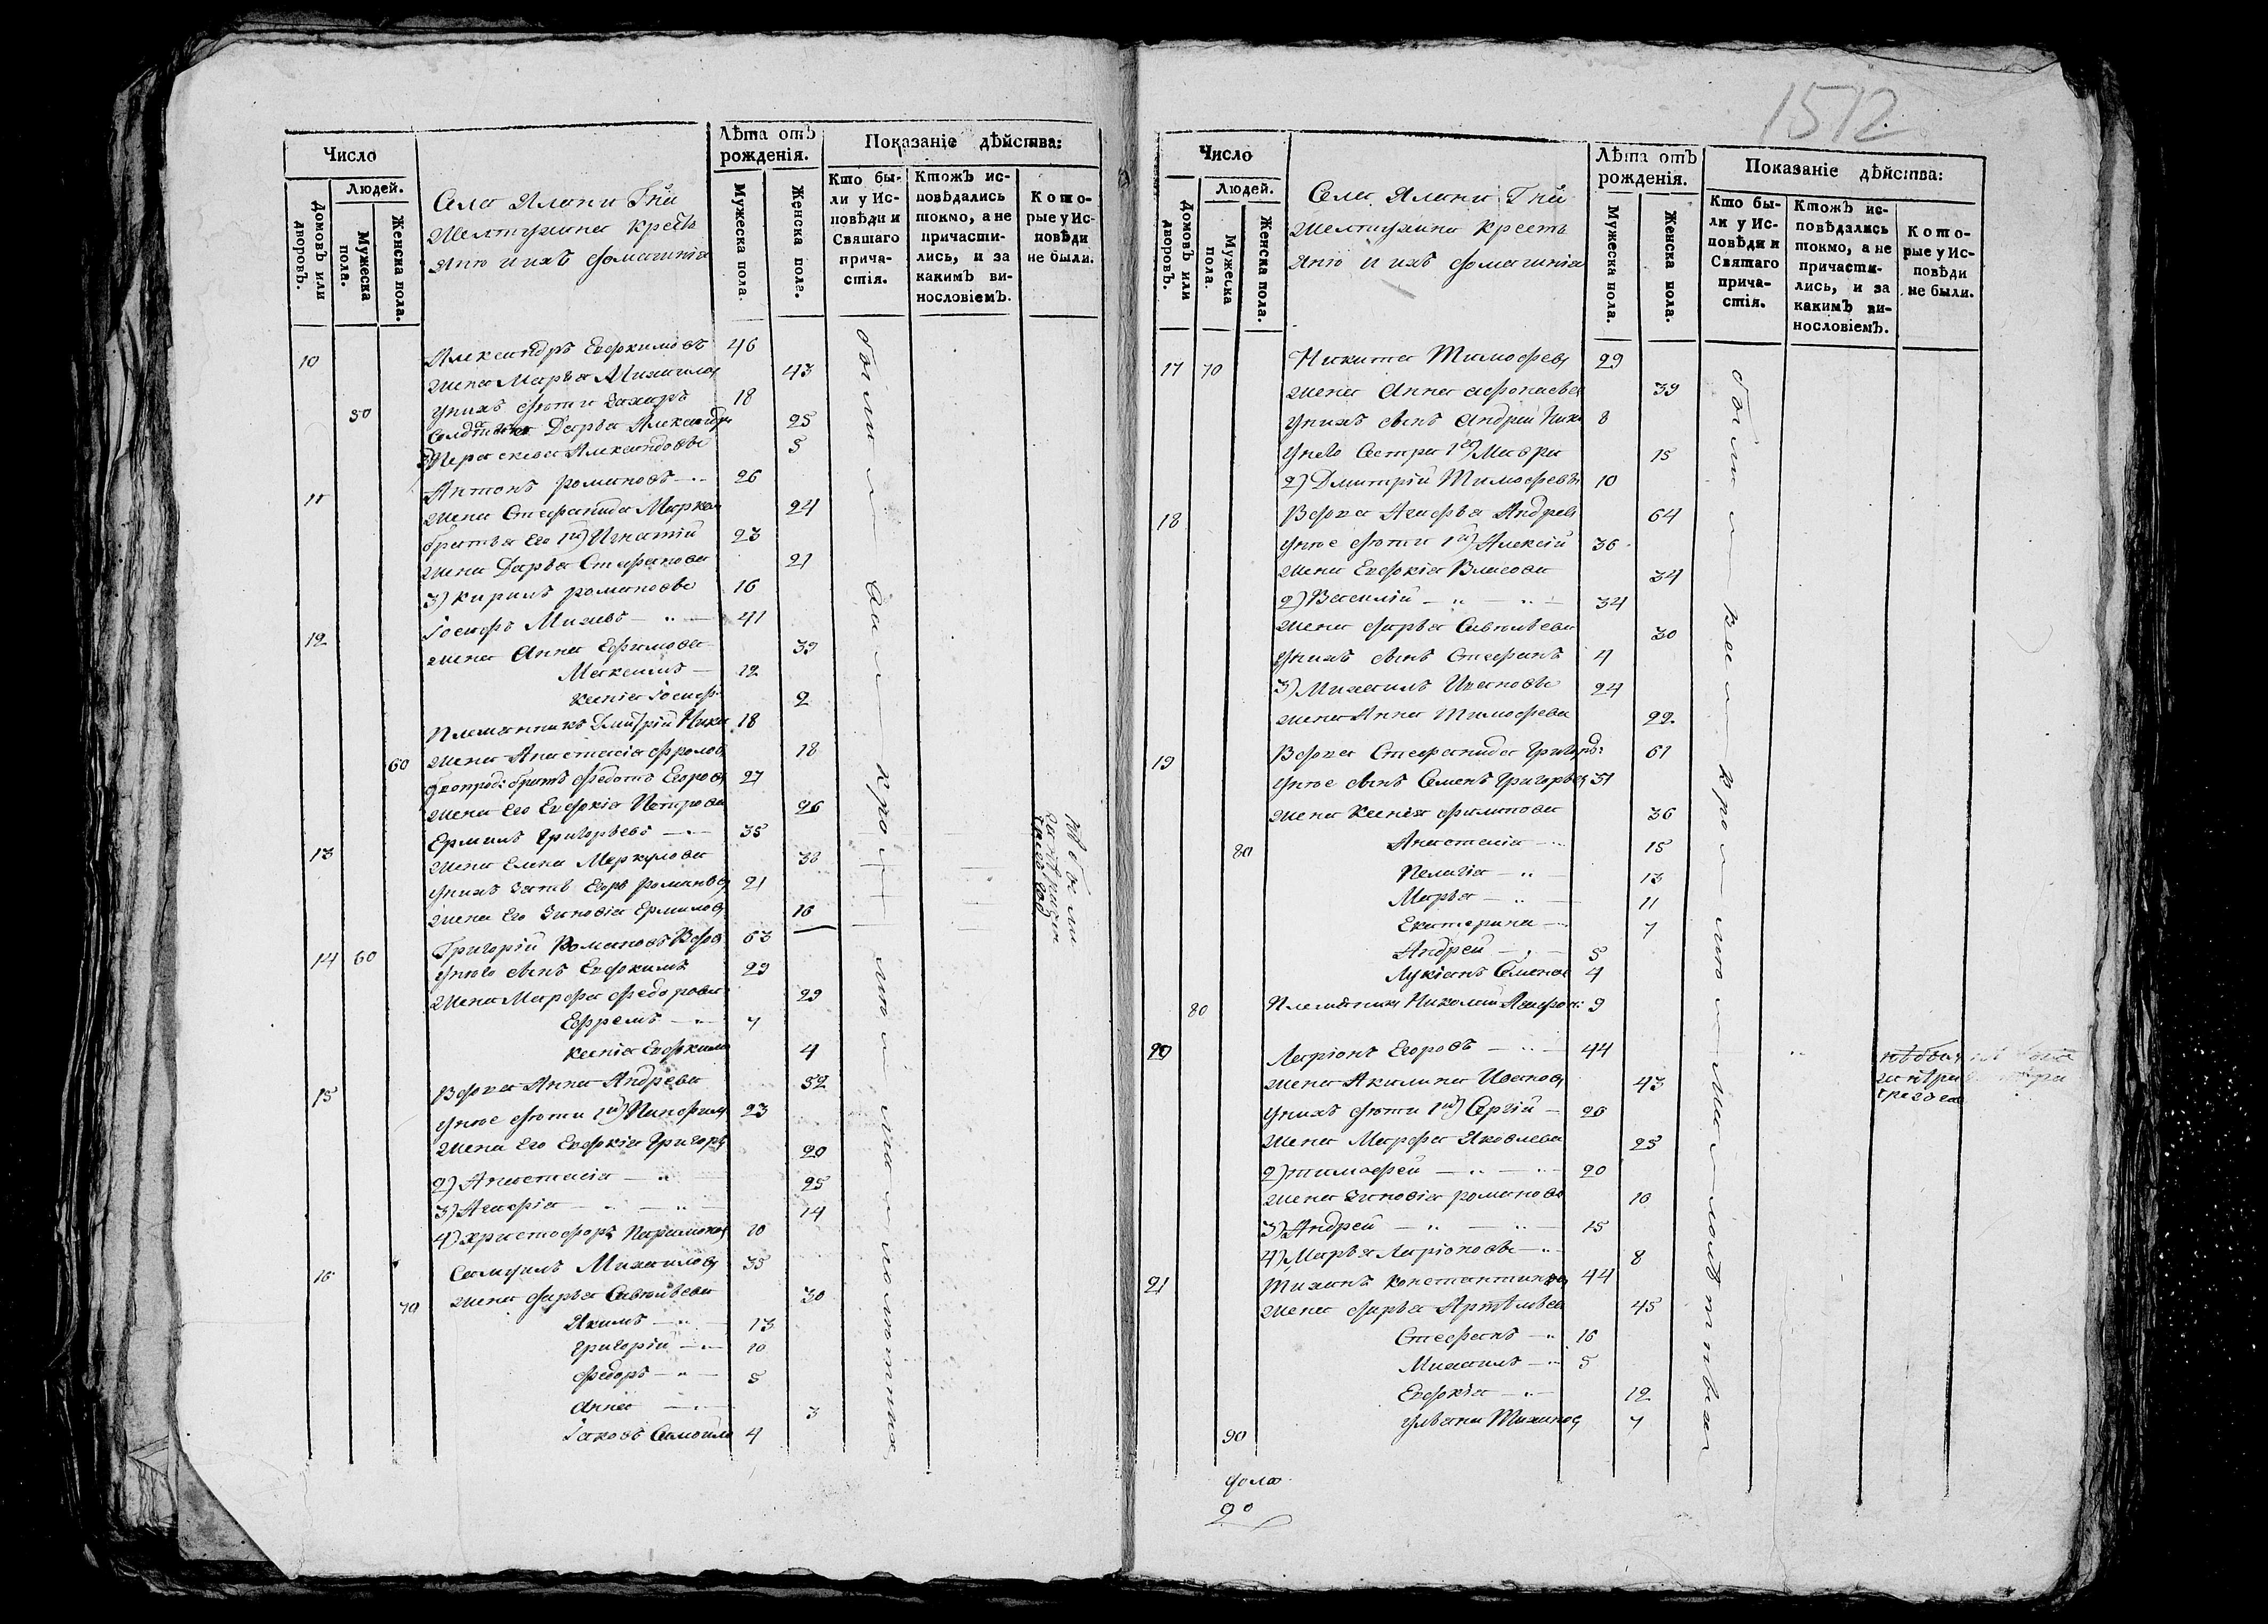 Число
Людей.
Домовъ или дворовъ.
Мужеска пола.
Женска пола.
Села Ялани Гжи
Шелтухина Кресть
яню и ихъ домашнія
Лѣта отъ рожденія.
Мужеска пола.
Женска пола.
Показаніе дѣйства:
Кто были у Исповѣди и Святаго причастія.
Ктожъ исповѣдались токмо, а не причастились, и за какимъ винословіемъ.
Которые у Исповѣди не были.
10 Александръ Евдокимовъ 46
жена Марья Михаилов 43
50 унихъ дѣти Захаръ 18
Солдатка Дарья Александр 25
3) Пераскева Александрова 5
11 Антонъ Романовъ 26
жена Стефанида Марков 24
братья Его 1й) Игнатій 23
жена Дарья Стефанова 21
3) Кирилъ Романовъ 16
12 Іосифъ Михеевъ 41
жена Анна Ефимова 39
Максимъ 12
Ксенія Іосиф 2
Племянникъ Дмитрій Ники 18
60 жена Анастасія Фролов 18
двоюрод: братъ Федотъ Егоров 27
жена Его Евдокія Петрова 26
13 Ермилъ Григорьевъ 35
жена Елена Меркулова 38
унихъ зять Егоръ Романов 21
жена Его Зиновія Ермилов 16
14 60 Григорій Романовъ Вдов 63
унего сынъ Евдокимъ 29
жена Марфа Федорова 29
Ефремъ 7
Ксенія Евдоким 4
15 Вдова Анна Андрева 52
унее дѣти 1й) Панфил 23
жена Его Евдокія Григор 20
2) Анастасія 25
3) Агафія 14
4) Христофоръ 10
16 Самуилъ Михаилов 35
70 жена Дарья Савельева 30
Якимъ 13
Григорій 10
Федоръ 5
Анна 3
Іаковъ Самойло 4
были
1512
Число
Людей.
Домовъ или дворовъ.
Мужеска пола.
Женска пола.
Села Ялани Гжи
Шелтухина Кресть
яню и ихъ домашнія
Лѣта отъ рожденія.
Мужеска пола.
Женска пола.
Показаніе дѣйства:
Кто были у Исповѣди и Святаго причастія.
Ктожъ исповѣдались токмо, а не причастились, и за какимъ винословіемъ.
Которые у Исповѣди не были.
17 70 Никита Тимофев 29
жена Анна Афонасьева 39
унихъ сынъ Андрей Ники 8
унего Сестра 1я) Мавра 15
2) Дмитрій Тимофевъ 10
18 Вдова Агафья Андрев 64
унее дѣти 1й) Алексій 36
жена Евдокія Власова 34
2) Василій 34
жена Дарья Савельева 30
унихъ сынъ Стефанъ 4
3) Михаилъ Ивановъ 24
жена Анна Тимофева 22
19 Вдова Стефанида Григор: 61
унее сынъ Семенъ Григорьев 31
жена Ксенія Филипова 36
80 Анастасія 15
Пелагія 13
Марья 11
Екатерина 7
Андрей 5
Лукіанъ Семенов 4
80 Племянник Николай 9
20 Ларіонъ Егоровъ 44
жена Акилина Иванов 43
унихъ дѣти 1й) Сергій 26
жена Марфа Яковлева 25
2) Тимофей 20
жена Зиновія Романова 16
3) Андрей 15
4) Марья Ларіонова 8
21 Тихонъ Константинов 44
жена Дарья Артемьев 45
Стефанъ 16
Михаилъ 5
Евдокія 12
90 Ульяна Тихонов 7
были
20